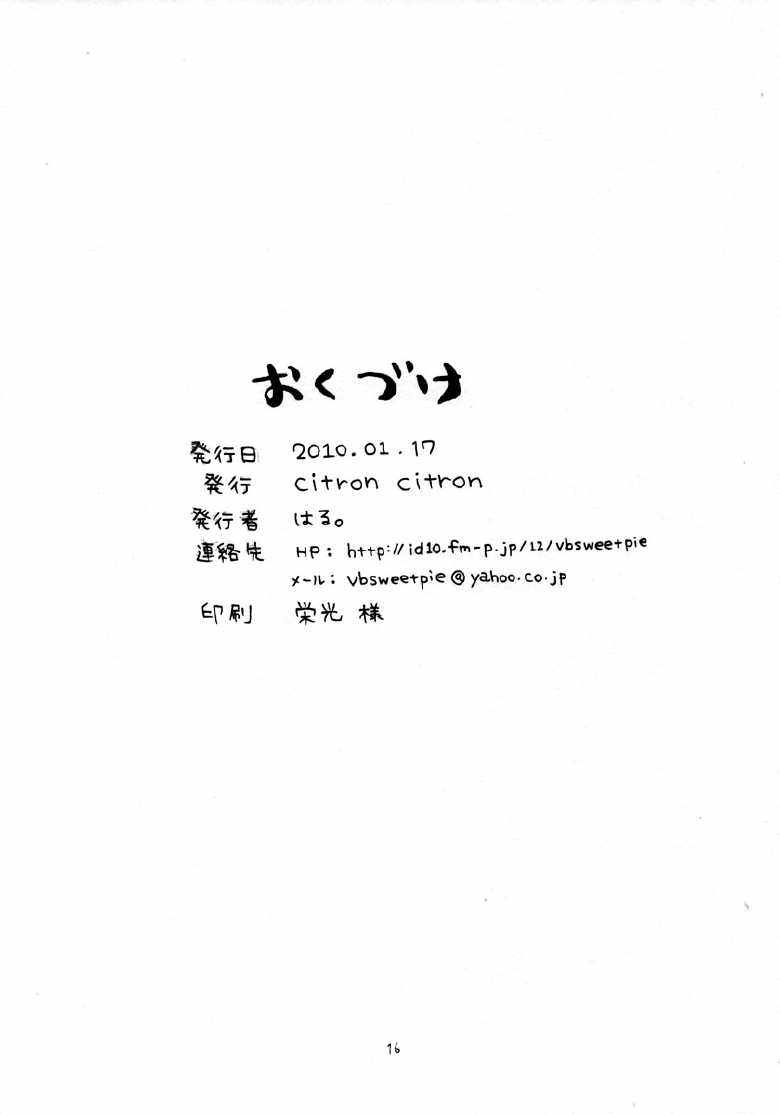 おくづけ
発行日 2010.01.17
発行 citron citron
発行者 はる。
連絡先 HP: http://id10.fm-p.jp/12/vbsweetpie
メール: vbsweetpie@yahoo.co.jp
印刷 栄光 様
16